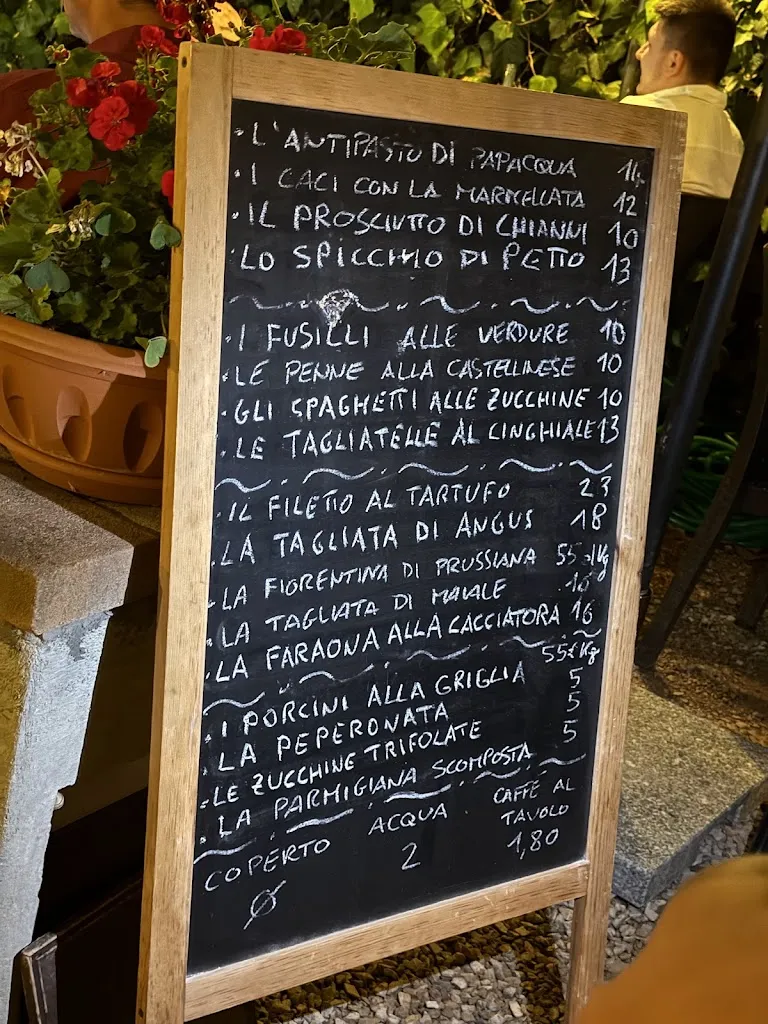 · L'ANTIPASTO DI PAPACQUA 14
· I CACI CON LA MARMELLATA 12
· IL PROSCIUTTO DI CHIANNI 10
· LO SPICCHIO DI PETTO 13
· I FUSILLI ALLE VERDURE 10
· LE PENNE ALLA CASTELLINESE 10
· GLI SPAGHETTI ALLE ZUCCHINE 10
· LE TAGLIATELLE AL CINGHIALE 13
· IL FILETTO AL TARTUFO 23
· LA TAGLIATA DI ANGUS 18
· LA FIORENTINA DI PRUSSIANA 55€/Kg
· LA TAGLIATA DI MAIALE
· LA FARAONA ALLA CACCIATORA 16
· I PORCINI ALLA GRIGLIA 55€/Kg
· LA PEPERONATA 5
· LE ZUCCHINE TRIFOLATE 5
· LA PARMIGIANA SCOMPOSTA 5
COPERTO ACQUA CAFFÈ AL
TAVOLO
Ø 2 1,80